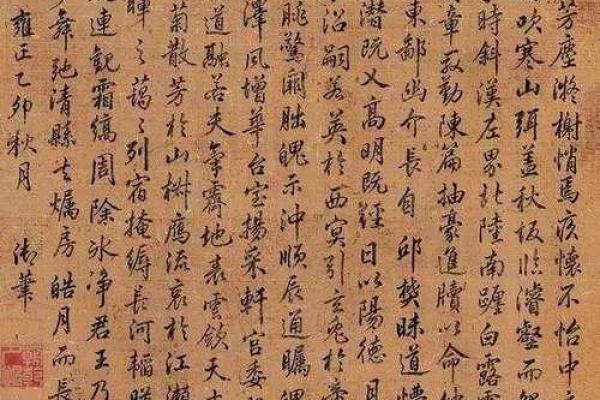 芳塵凝榭悄焉疚懷不怡中
吹寒山弭蓋秋阪臨濬壑而
時斜漢左界北陸南躔白露
章殷勤陳篇抽豪進牘以命
東鄙幽介長自邱樊昧道懵
潛既乂高明既經日以陽德月
沼嗣若英於西冥引玄兔於
朓驚闕朏魄示沖順辰通矚
澤風增華台室揚采軒宮委
道融若夫氣霽地表雲斂天
菊散芳於山椒鴈流哀於江瀨
暉之藹々列宿掩縟長河韜映
連觀霜縞周除冰淨君王乃
舞弛清縣去燭房皓月而長
雍正乙卯秋月 御筆